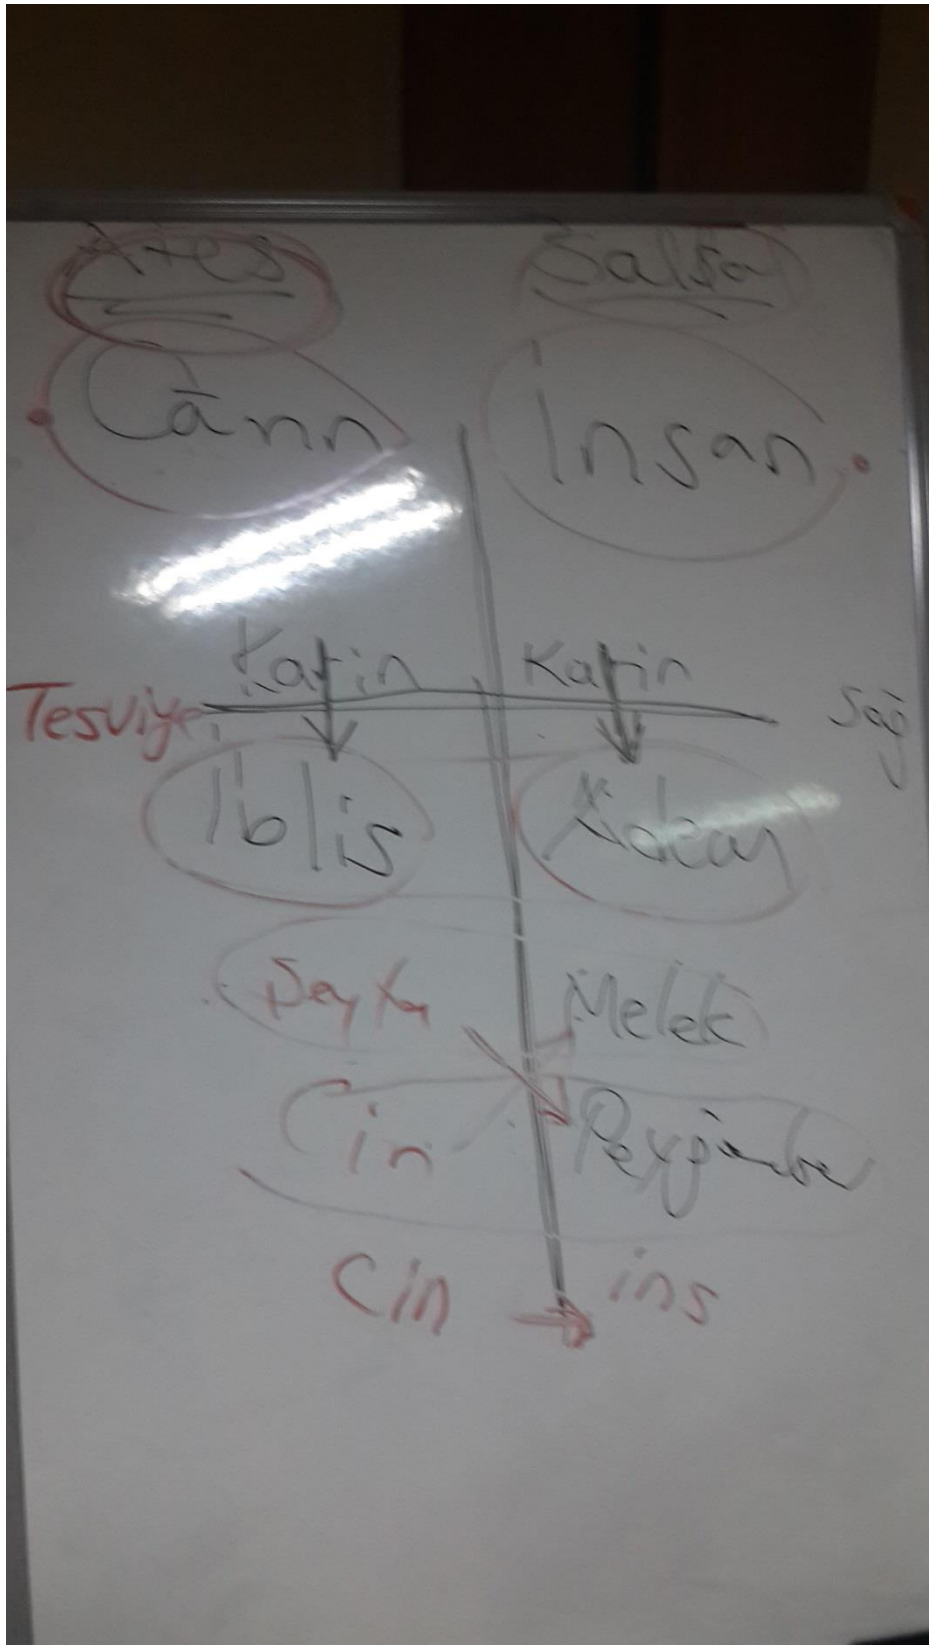 Ateş Salsal
Cānn İnsan
Karin Karin
Tesviye Sağ
İblis Adem
Şeytan Melek
Cin Peygamber
Cin ins